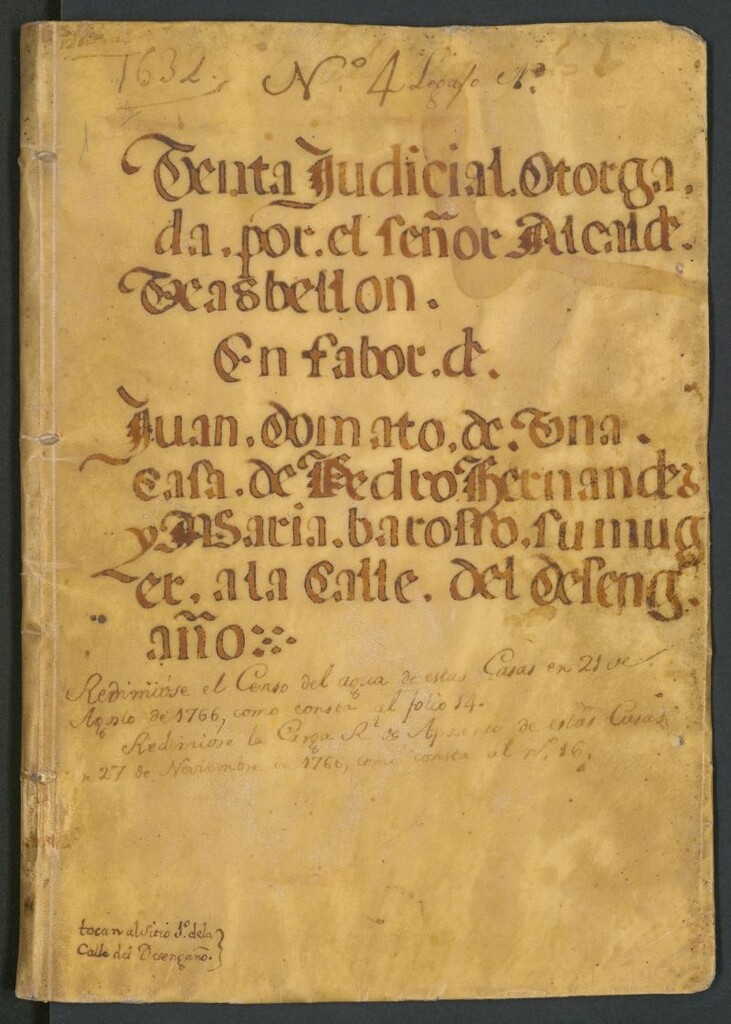 1632. N.º 4 Legaso Nº.
Venta Judicial. Otorga.
da. por. el señor Alcalde.
Trasbellon.
En fabor. de.
Juan. donato. de. Una.
Casa. de Pedro Hernandez
y Maria. barosso. su mug
er. a la Calle. del deseng
año
Redimióse el Censo del agua de estas Casas en 21 de
Agosto de 1766, como consta al folio 14.
Redimióse la Carga Rl. de Aposento de estas Casas
en 27 de Noviembre de 1766, como consta al nº. 16.
tocan al sitio 1º. dela
Calle del Desengaño.